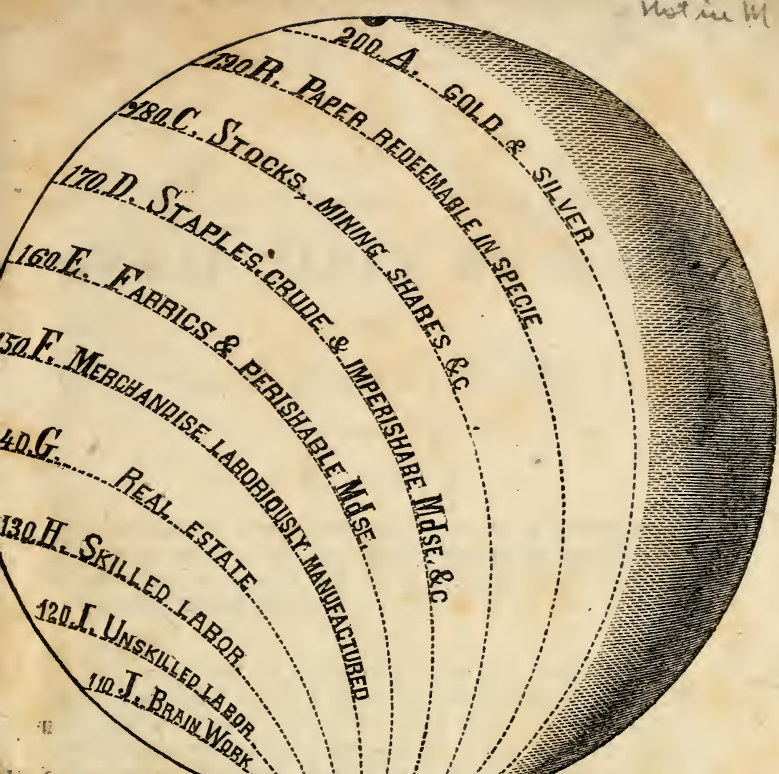 Not in M
200. A. GOLD & SILVER
190. B. PAPER REDEEMABLE IN SPECIE
180. C. STOCKS, MINING SHARES &c
170. D. STAPLES, CRUDE & IMPERISHABE Mdse. &c
160. E. FABRICS & PERISHABLE Mdse.
150. F. MERCHANDISE LABORIOUSLY MANUFACTURED
40. G. REAL ESTATE
130. H. SKILLED LABOR
120. I. UNSKILLED LABOR
110. J. BRAIN WORK